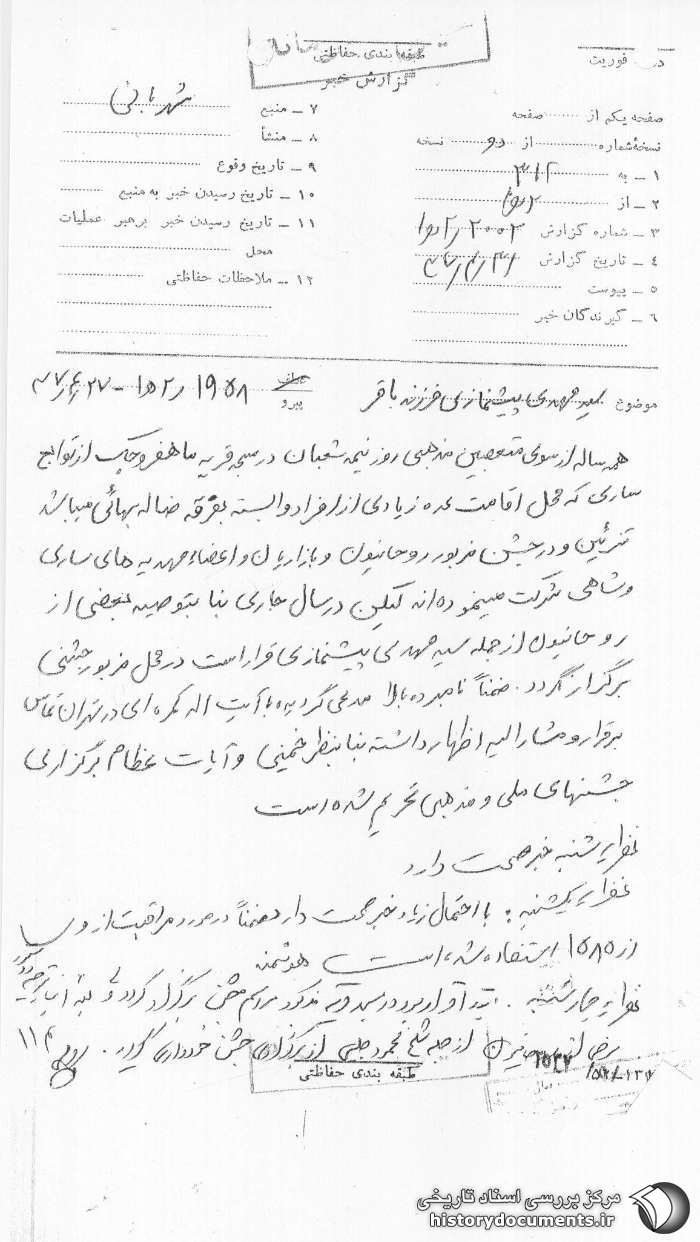 طبقه بندی حفاظتی
گزارش خبر
فوریت
صفحه یکم از صفحه
نسخهٔ شماره از دو نسخه
۱ ـ به ۳۱۲
۲ ـ از
۳ ـ شماره گزارش
۴ ـ تاریخ گزارش
۵ ـ پیوست
۶ ـ گیرندگان خبر
۷ ـ منبع شهربانی
۸ ـ منشأ
۹ ـ تاریخ وقوع
۱۰ ـ تاریخ رسیدن خبر به منبع
۱۱ ـ تاریخ رسیدن خبر برهبر عملیات
محل
۱۲ ـ ملاحظات حفاظتی
موضوع سید مهدی پیشنمازی فرزند باقر
پیرو
همه ساله از سوی متعصبین مذهبی روز نیمه شعبان در مسجد قریه ماهفروجک از توابع
ساری که محل اقامت عده زیادی از افراد وابسته بفرقه ضاله بهائی میباشد
تزئین و در جشن مزبور روحانیون و بازاریان و اعضاء مهدیه های ساری
و شاهی شرکت مینموده اند لیکن در سال جاری بنا بتوصیه بعضی از
روحانیون از جمله سید مهدی پیشنمازی قرار است در محل مزبور جشنی
برگزار نگردد. ضمناً نامبرده بالا مدعی گردیده با آیت اله کمره ای در تهران تماس
برقرار و مشارالیه اظهار داشته بنا بنظر خمینی و آیات عظام برگزاری
جشنهای ملی و مذهبی تحریم شده است
نظریه شنبه خبر صحت دارد
نظریه یکشنبه : با احتمال زیاد خبر صحت دارد ضمناً در مورد مراقبت از وی
از ۱۵۸۵ استفاده شده است هوشمند
نظریه چهارشنبه . در مسجد قریه مذکور مراسم جشن برگزار
از جمله شیخ محمود از برگزاری جشن خودداری گردد.
طبقه بندی حفاظتی
مرکز بررسی اسناد تاریخی
historydocuments.ir